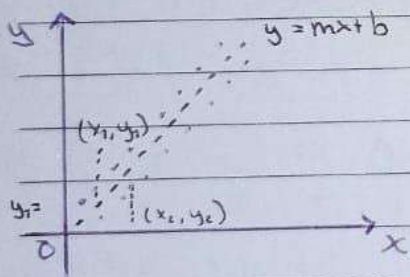 y
y = mx + b
(x₁, y₁)
y₁ =
(x₂, y₂)
0
x